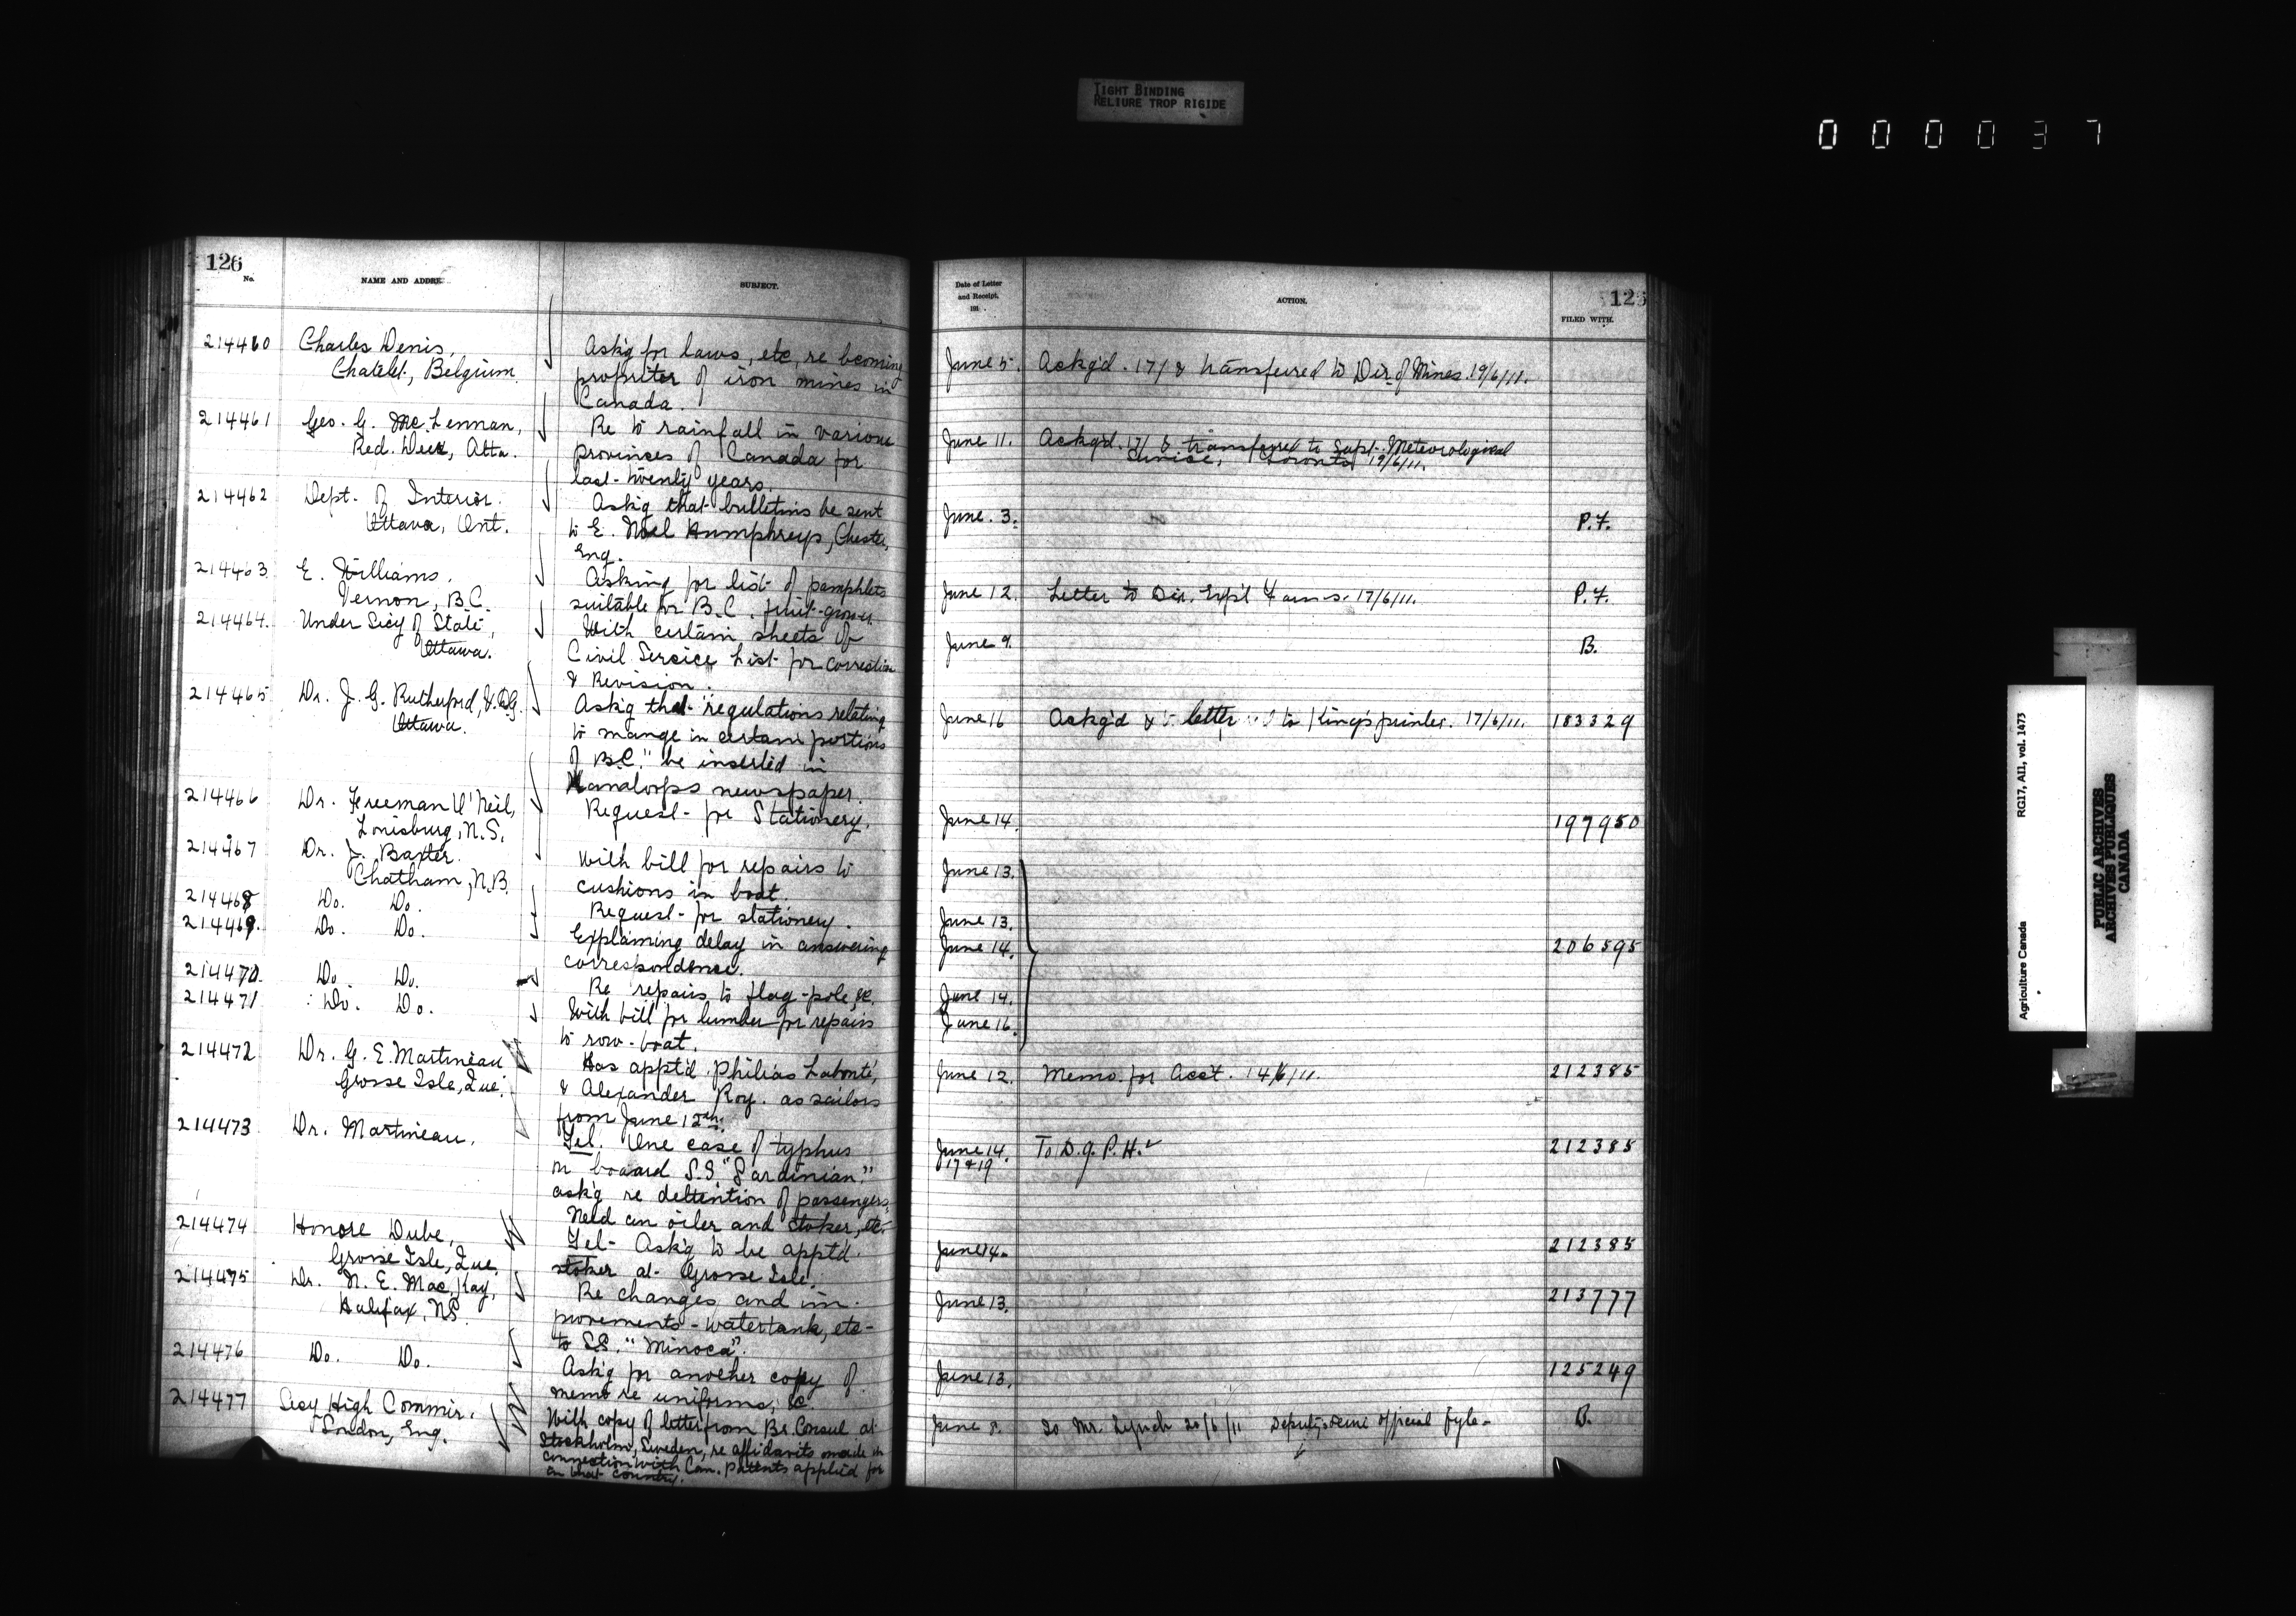 TIGHT BINDING
RELIURE TROP RIGIDE
000037
126
No.
NAME AND ADDRE
SUBJECT.
214460 Charles Denis,
Chatelet, Belgium.
Ask'g for laws, etc, re bcoming
propriter of iron mines in
Canada.
214461 Geo. G. McLennan,
Red. Deer, Alta.
Re to rainfall in various
provinces of Canada for
last twenty years.
214462 Dept. of Interior.
Ottawa, Ont.
Ask'g that bulletins be sent
to E. Noel Humphreys, Chester,
Eng.
214463 E. Williams,
Vernon, B.C.
Asking for list of pamphlets
suitable for B.C. fruit-grower.
214464. Under Sec'y of State,
Ottawa.
With certain sheets of
Civil Service List for correction
& Revision.
214465 Dr. J. G. Rutherford, V.D.G.
Ottawa.
Ask'g that "regulations relating
to mange in certain portions
of B.C." be inserted in
Kamaloops newspaper.
214466 Dr. Freeman O'Neil,
Louisburg, N.S.
Request for Stationery.
214467 Dr. J. Baxter.
Chatham, N.B.
With bill for repairs to
cushions in boat.
214468 Do. Do.
Request for stationery.
214469. Do. Do.
Explaining delay in answering
correspondence.
214470. Do. Do.
Re repairs to flag-pole, &c.
214471 Do. Do.
With bill for lumber for repairs
to row-boat.
214472 Dr. G. E. Martineau
Grosse Isle, Que.
Has appt'd. Philias Labonté,
& Alexander Roy. as sailors
from June 12th.
214473 Dr. Martineau.
Tel. One case of typhus
on boaard S.S. "Sardinian."
ask'g re dettention of passengers.
Need an oiler and stoker, etc-
214474 Honore Dube,
Grosse Isle, Que.
Tel- Ask'g to be appt'd.
stoker at Grosse Isle.
214475 Dr. N. E. MacKay,
Halifax, NS.
Re changes and im-
provements - watertank, etc-
to S.S. "Minoca".
214476 Do. Do.
Ask'g for another copy of
memo re uniforms, &c.
214477 Secy High Commir.
London, Eng.
With copy of letter from Br. Consul at
Stockholm, Sweden, re affidavits made in
connection with Can. Patents applied for
in that country.
Date of Letter
and Receipt.
191
ACTION.
125
FILED WITH.
June 5. Ackg'd. 17/ & transferred to Dir. of Mines. 19/6/11.
June 11. Ackg'd. 17/ & transferred to Supt. Meteorological
Service, Toronto 19/6/11.
June. 3. P.F.
June 12. Letter to Dir. Exp'l Farms. 17/6/11. P.F.
June 9. B.
June 16 Ackg'd & letter to King's printer. 17/6/11. 183329
June 14. 197950
June 13.
June 13.
June 14. 206595
June 14.
June 16.
June 12. Memo. for Acc't. 14/6/11. 212385
June 14. To D.G.P.H. 212385
17 & 19
June 14. 212385
June 13. 213777
June 13. 125249
June 8. To Mr. Lynch 20/6/11 Deputy's semi official fyle- B.
Agriculture Canada
RG17, AII, vol. 1473
PUBLIC ARCHIVES
ARCHIVES PUBLIQUES
CANADA